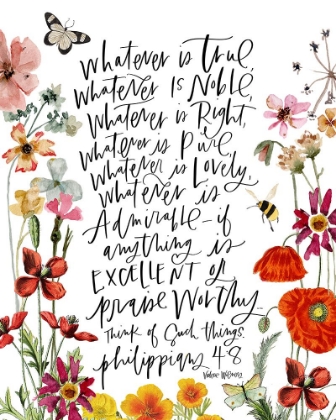 Whatever is True,
Whatever Is Noble,
Whatever is Right,
Whatever is Pure
Whatever is Lovely,
Whatever is
Admirable - if
anything is
EXCELLENT or
praise Worthy.
Think of Such things.
philippians 4:8